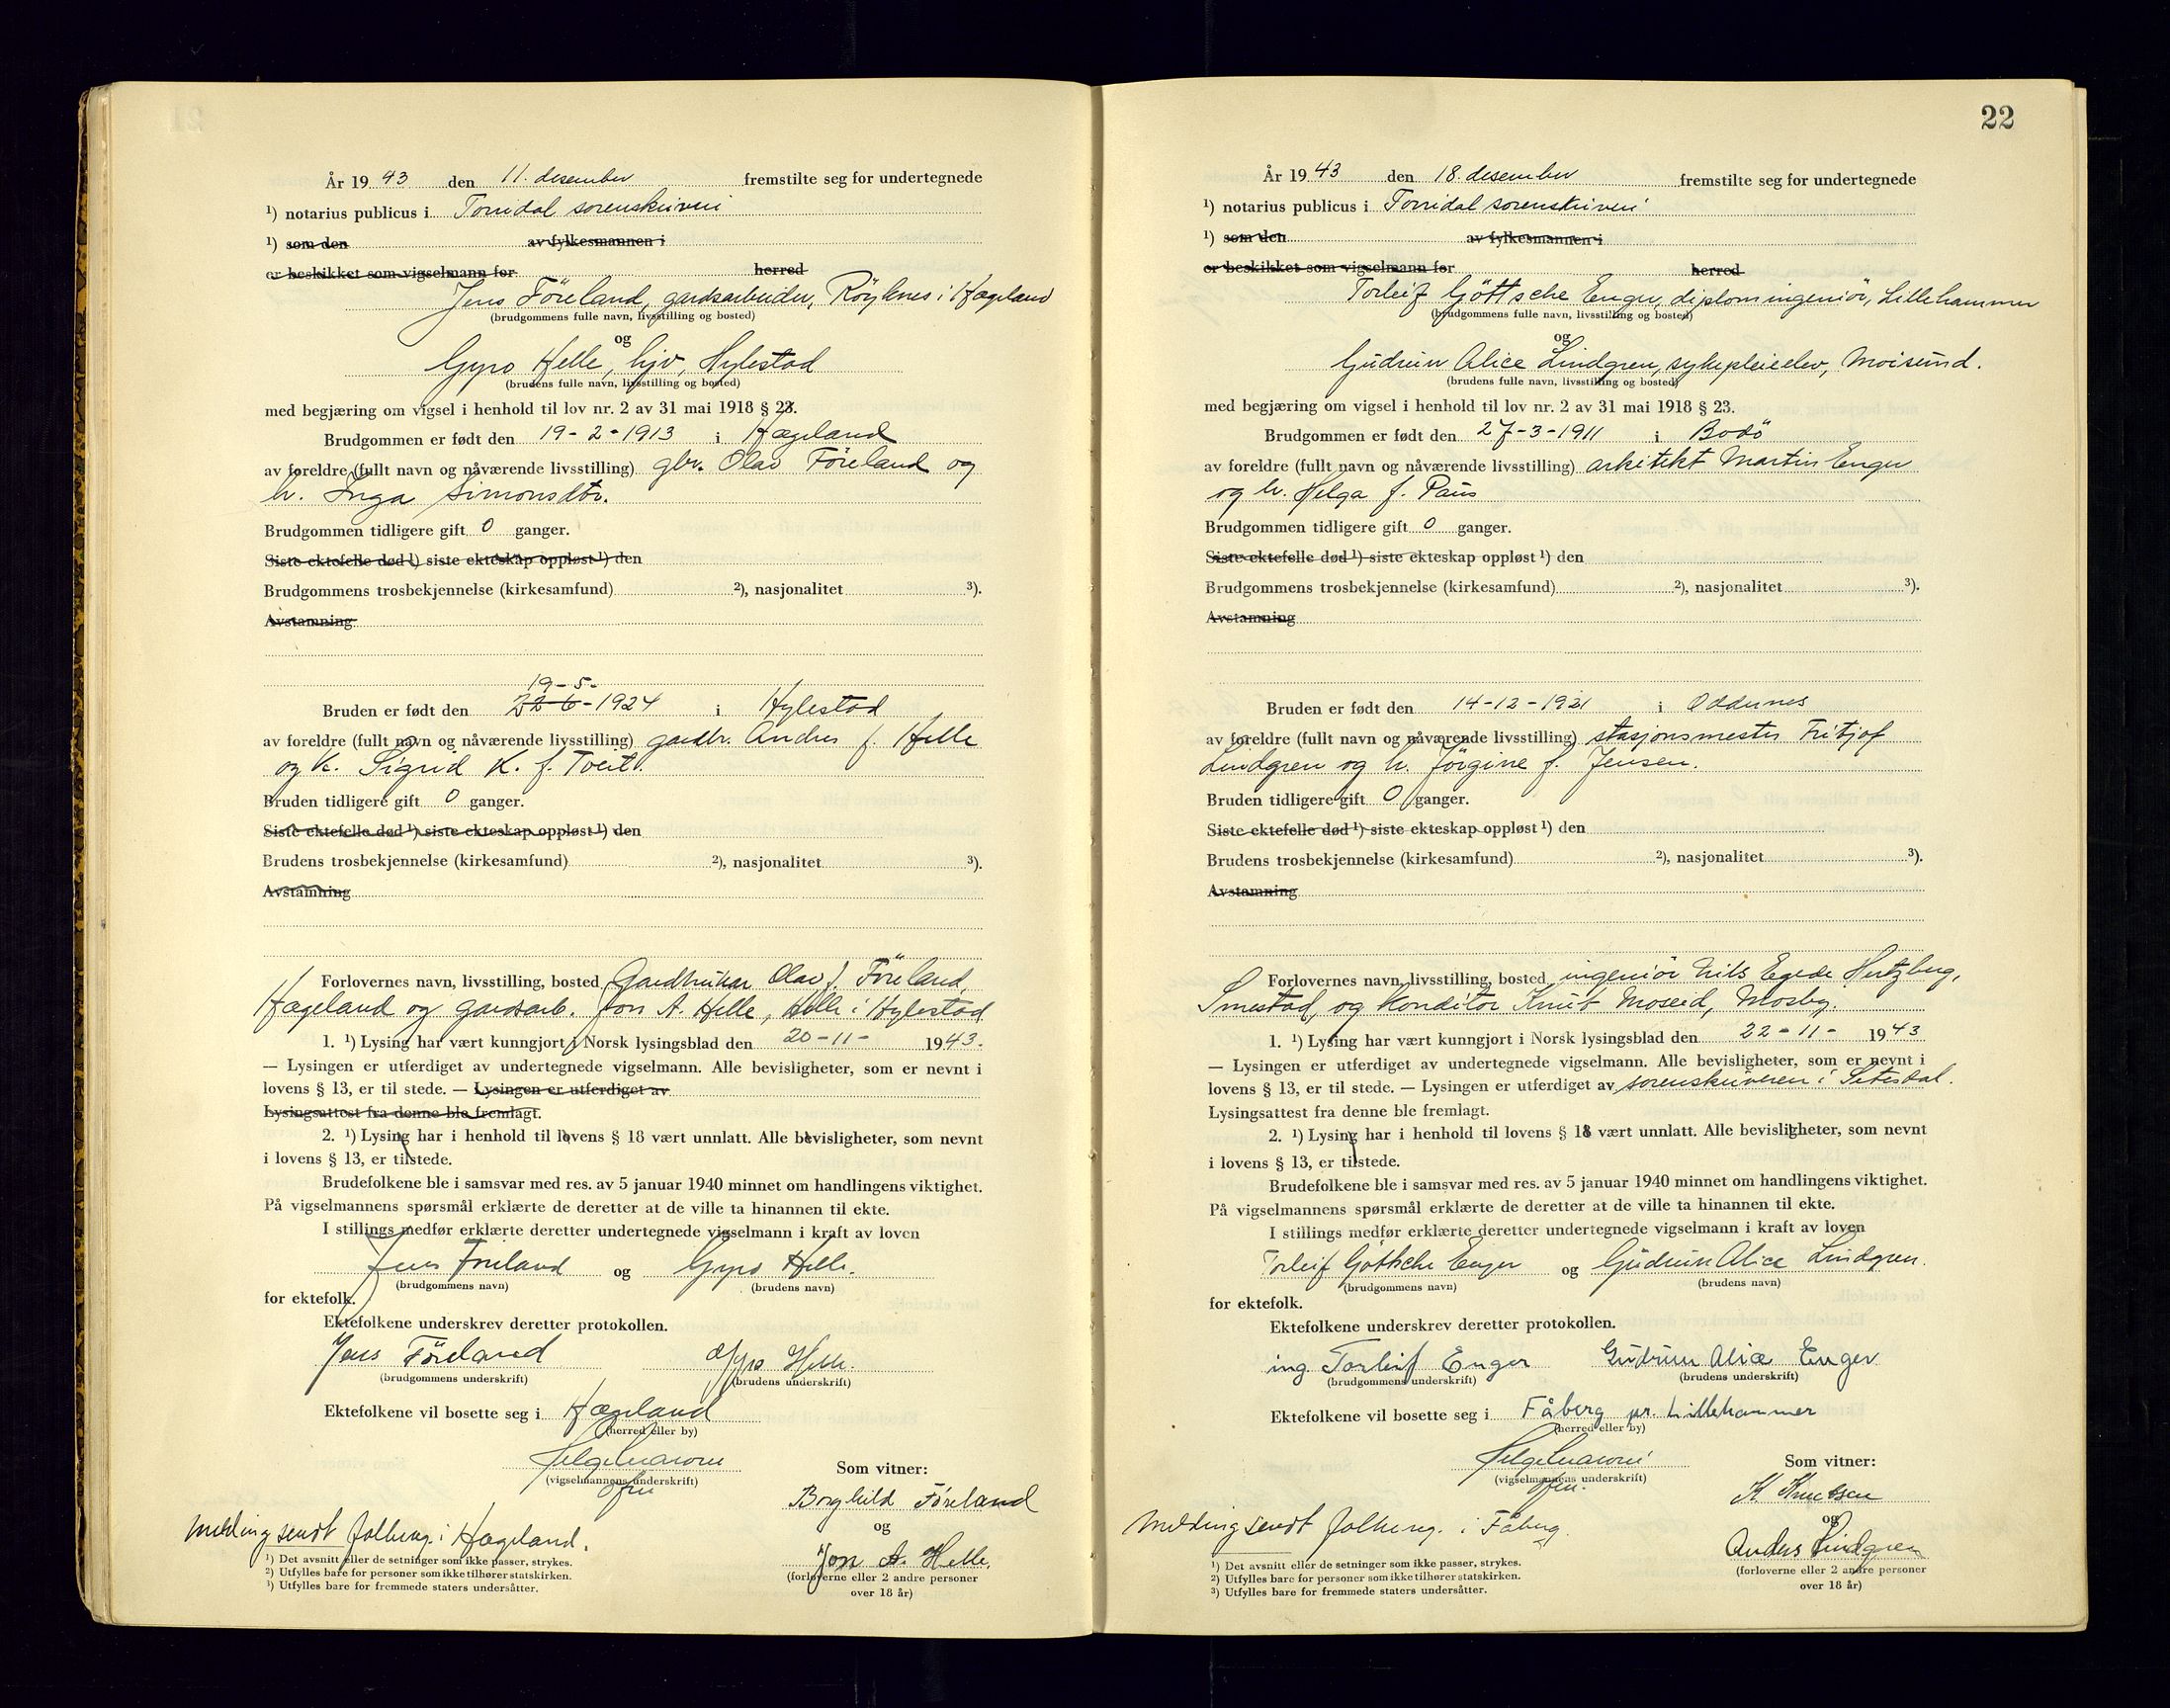 År 1943 den 11. desember fremstilte seg for undertegnede
¹) notarius publicus i Torridal sorenskriveri
¹) som den av fylkesmannen i
er beskikket som vigselmann for herred
Jens Föreland, gardsarbeider, Röyknes i Hægeland
(brudgommens fulle navn, livsstilling og bosted)
og
Gyro Helle, hjv, Hylestad
(brudens fulle navn, livsstilling og bosted)
med begjæring om vigsel i henhold til lov nr. 2 av 31 mai 1918 § 23.
Brudgommen er født den 19-2-1913 i Hægeland
av foreldre (fullt navn og nåværende livsstilling) gbr. Olav Föreland og
h. Inga Simonsdtr.
Brudgommen tidligere gift 0 ganger.
Siste ektefelle død ¹) siste ekteskap oppløst ¹) den
Brudgommens trosbekjennelse (kirkesamfund) ²), nasjonalitet ³).
Avstamning
19-5-
22-6-1924
Bruden er født den i Hylestad
av foreldre (fullt navn og nåværende livsstilling) gardbr. Andres J. Helle
og h. Sigrid K. f. Tveit.
Bruden tidligere gift 0 ganger.
Siste ektefelle død ¹) siste ekteskap oppløst ¹) den
Brudens trosbekjennelse (kirkesamfund) ²), nasjonalitet ³).
Avstamning
Forlovernes navn, livsstilling, bosted Gardbruker Olav J. Föreland,
Hægeland og gardsarb. Jon A. Helle, Helle i Hylestad
1. ¹) Lysing har vært kunngjort i Norsk lysingsblad den 20-11- 1943.
— Lysingen er utferdiget av undertegnede vigselmann. Alle bevisligheter, som er nevnt i
lovens § 13, er til stede. — Lysingen er utferdiget av
Lysingsattest fra denne ble fremlagt.
2. ¹) Lysing har i henhold til lovens § 18 vært unnlatt. Alle bevisligheter, som nevnt
i lovens § 13, er tilstede.
Brudefolkene ble i samsvar med res. av 5 januar 1940 minnet om handlingens viktighet.
På vigselmannens spørsmål erklærte de deretter at de ville ta hinannen til ekte.
I stillings medfør erklærte deretter undertegnede vigselmann i kraft av loven
Jens Föreland og Gyro Helle.
(brudgommens navn) (brudens navn)
for ektefolk.
Ektefolkene underskrev deretter protokollen.
Jens Föreland Gyro Helle.
(brudgommens underskrift) (brudens underskrift)
Ektefolkene vil bosette seg i Hægeland
(herred eller by)
(vigselmannens underskrift)
Som vitner:
Borghild Föreland
og
Jon A. Helle.
(forloverne eller 2 andre personer
over 18 år)
Melding sendt folkereg. i Hægeland.
¹) Det avsnitt eller de setninger som ikke passer, strykes.
²) Utfylles bare for personer som ikke tilhører statskirken.
³) Utfylles bare for fremmede staters undersåtter.
22
År 1943 den 18. desember fremstilte seg for undertegnede
¹) notarius publicus i Torridal sorenskriveri
¹) som den av fylkesmannen i
er beskikket som vigselmann for herred
Torleif Göttsche Enger, diplomingeniör, Lillehammer
(brudgommens fulle navn, livsstilling og bosted)
og
Gudrun Alice Lindgren, sykepleieelev, Moisund.
(brudens fulle navn, livsstilling og bosted)
med begjæring om vigsel i henhold til lov nr. 2 av 31 mai 1918 § 23.
Brudgommen er født den 27-3-1911 i Bodö
av foreldre (fullt navn og nåværende livsstilling) arkitekt Martin Enger
og h. Helga f. Paus
Brudgommen tidligere gift 0 ganger.
Siste ektefelle død ¹) siste ekteskap oppløst ¹) den
Brudgommens trosbekjennelse (kirkesamfund) ²), nasjonalitet ³).
Avstamning
Bruden er født den 14-12-1921 i Oddernes
av foreldre (fullt navn og nåværende livsstilling) stasjonsmester Fritjof
Lindgren og h. Jörgine f. Jensen.
Bruden tidligere gift 0 ganger.
Siste ektefelle død ¹) siste ekteskap oppløst ¹) den
Brudens trosbekjennelse (kirkesamfund) ²), nasjonalitet ³).
Avstamning
Forlovernes navn, livsstilling, bosted ingeniör Nils Egede Hertzberg,
Smestad, og konditor Knut Moseid, Mosby.
1. ¹) Lysing har vært kunngjort i Norsk lysingsblad den 22-11- 1943
— Lysingen er utferdiget av undertegnede vigselmann. Alle bevisligheter, som er nevnt i
lovens § 13, er til stede. — Lysingen er utferdiget av sorenskriveren i Setesdal.
Lysingsattest fra denne ble fremlagt.
2. ¹) Lysing har i henhold til lovens § 18 vært unnlatt. Alle bevisligheter, som nevnt
i lovens § 13, er tilstede.
Brudefolkene ble i samsvar med res. av 5 januar 1940 minnet om handlingens viktighet.
På vigselmannens spørsmål erklærte de deretter at de ville ta hinannen til ekte.
I stillings medfør erklærte deretter undertegnede vigselmann i kraft av loven
Torleif Göttsche Enger og Gudrun Alice Lindgren.
(brudgommens navn) (brudens navn)
for ektefolk.
Ektefolkene underskrev deretter protokollen.
ing Torleif Enger Gudrun Alice Enger
(brudgommens underskrift) (brudens underskrift)
Ektefolkene vil bosette seg i Fåberg pr. Lillehammer
(herred eller by)
(vigselmannens underskrift)
Som vitner:
K. Knutsen
og
Anders Lindgren
(forloverne eller 2 andre personer
over 18 år)
Melding sendt folkereg. i Fåberg.
¹) Det avsnitt eller de setninger som ikke passer, strykes.
²) Utfylles bare for personer som ikke tilhører statskirken.
³) Utfylles bare for fremmede staters undersåtter.